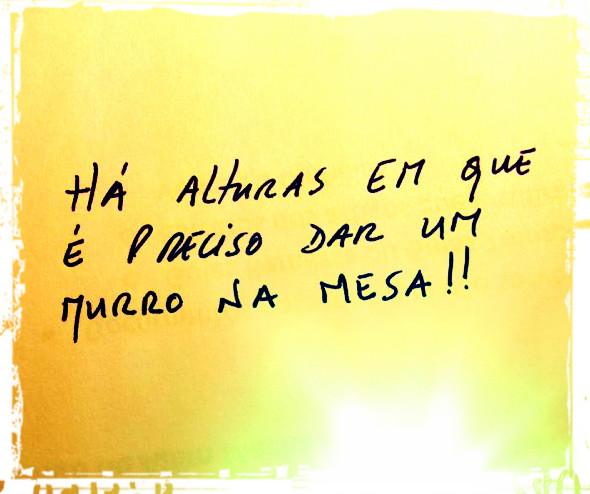 HÁ ALTURAS EM QUE
É PRECISO DAR UM
MURRO NA MESA!!